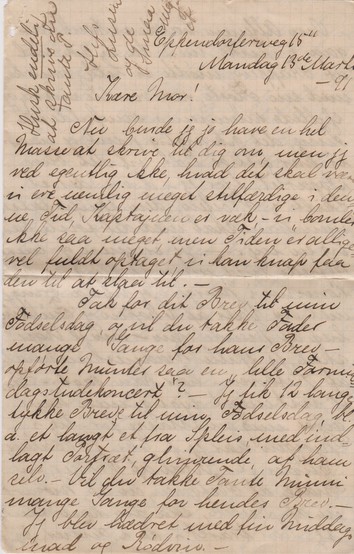 Husk endlig
at skrive din
Tante P.
Hils
Eppendorferweg 15
Mandag 13de Marts
– 91
Kære Mor!
Nu burde jeg jo have en hel
Masse at skrive til dig om men jeg
ved egentlig ikke, hvad det skal være
vi ere nemlig meget stilfærdige i den-
ne Tid, Kaptajnen er væk – vi
ikke saa meget, men Tiden er allige-
vel fuldt optaget vi kan knap faa
den til at slaa til. –
Tak for dit Brev til min
Fødselsdag, og vil du takke Fader
mange Gange for hans Brev –
opførte Munter saa en lille Formid-
dagstudekoncert? – Jeg fik 12 lang
lykke Breve til min Fødselsdag, bl.
a. et langt et fra med ind-
lagt Portræt, glimrende, af ham
selv. – Vil du takke Tante Mimi
mange Gange for hendes Brev. –
Jeg blev hædret med fin Middags-
mad og Rødvin. –